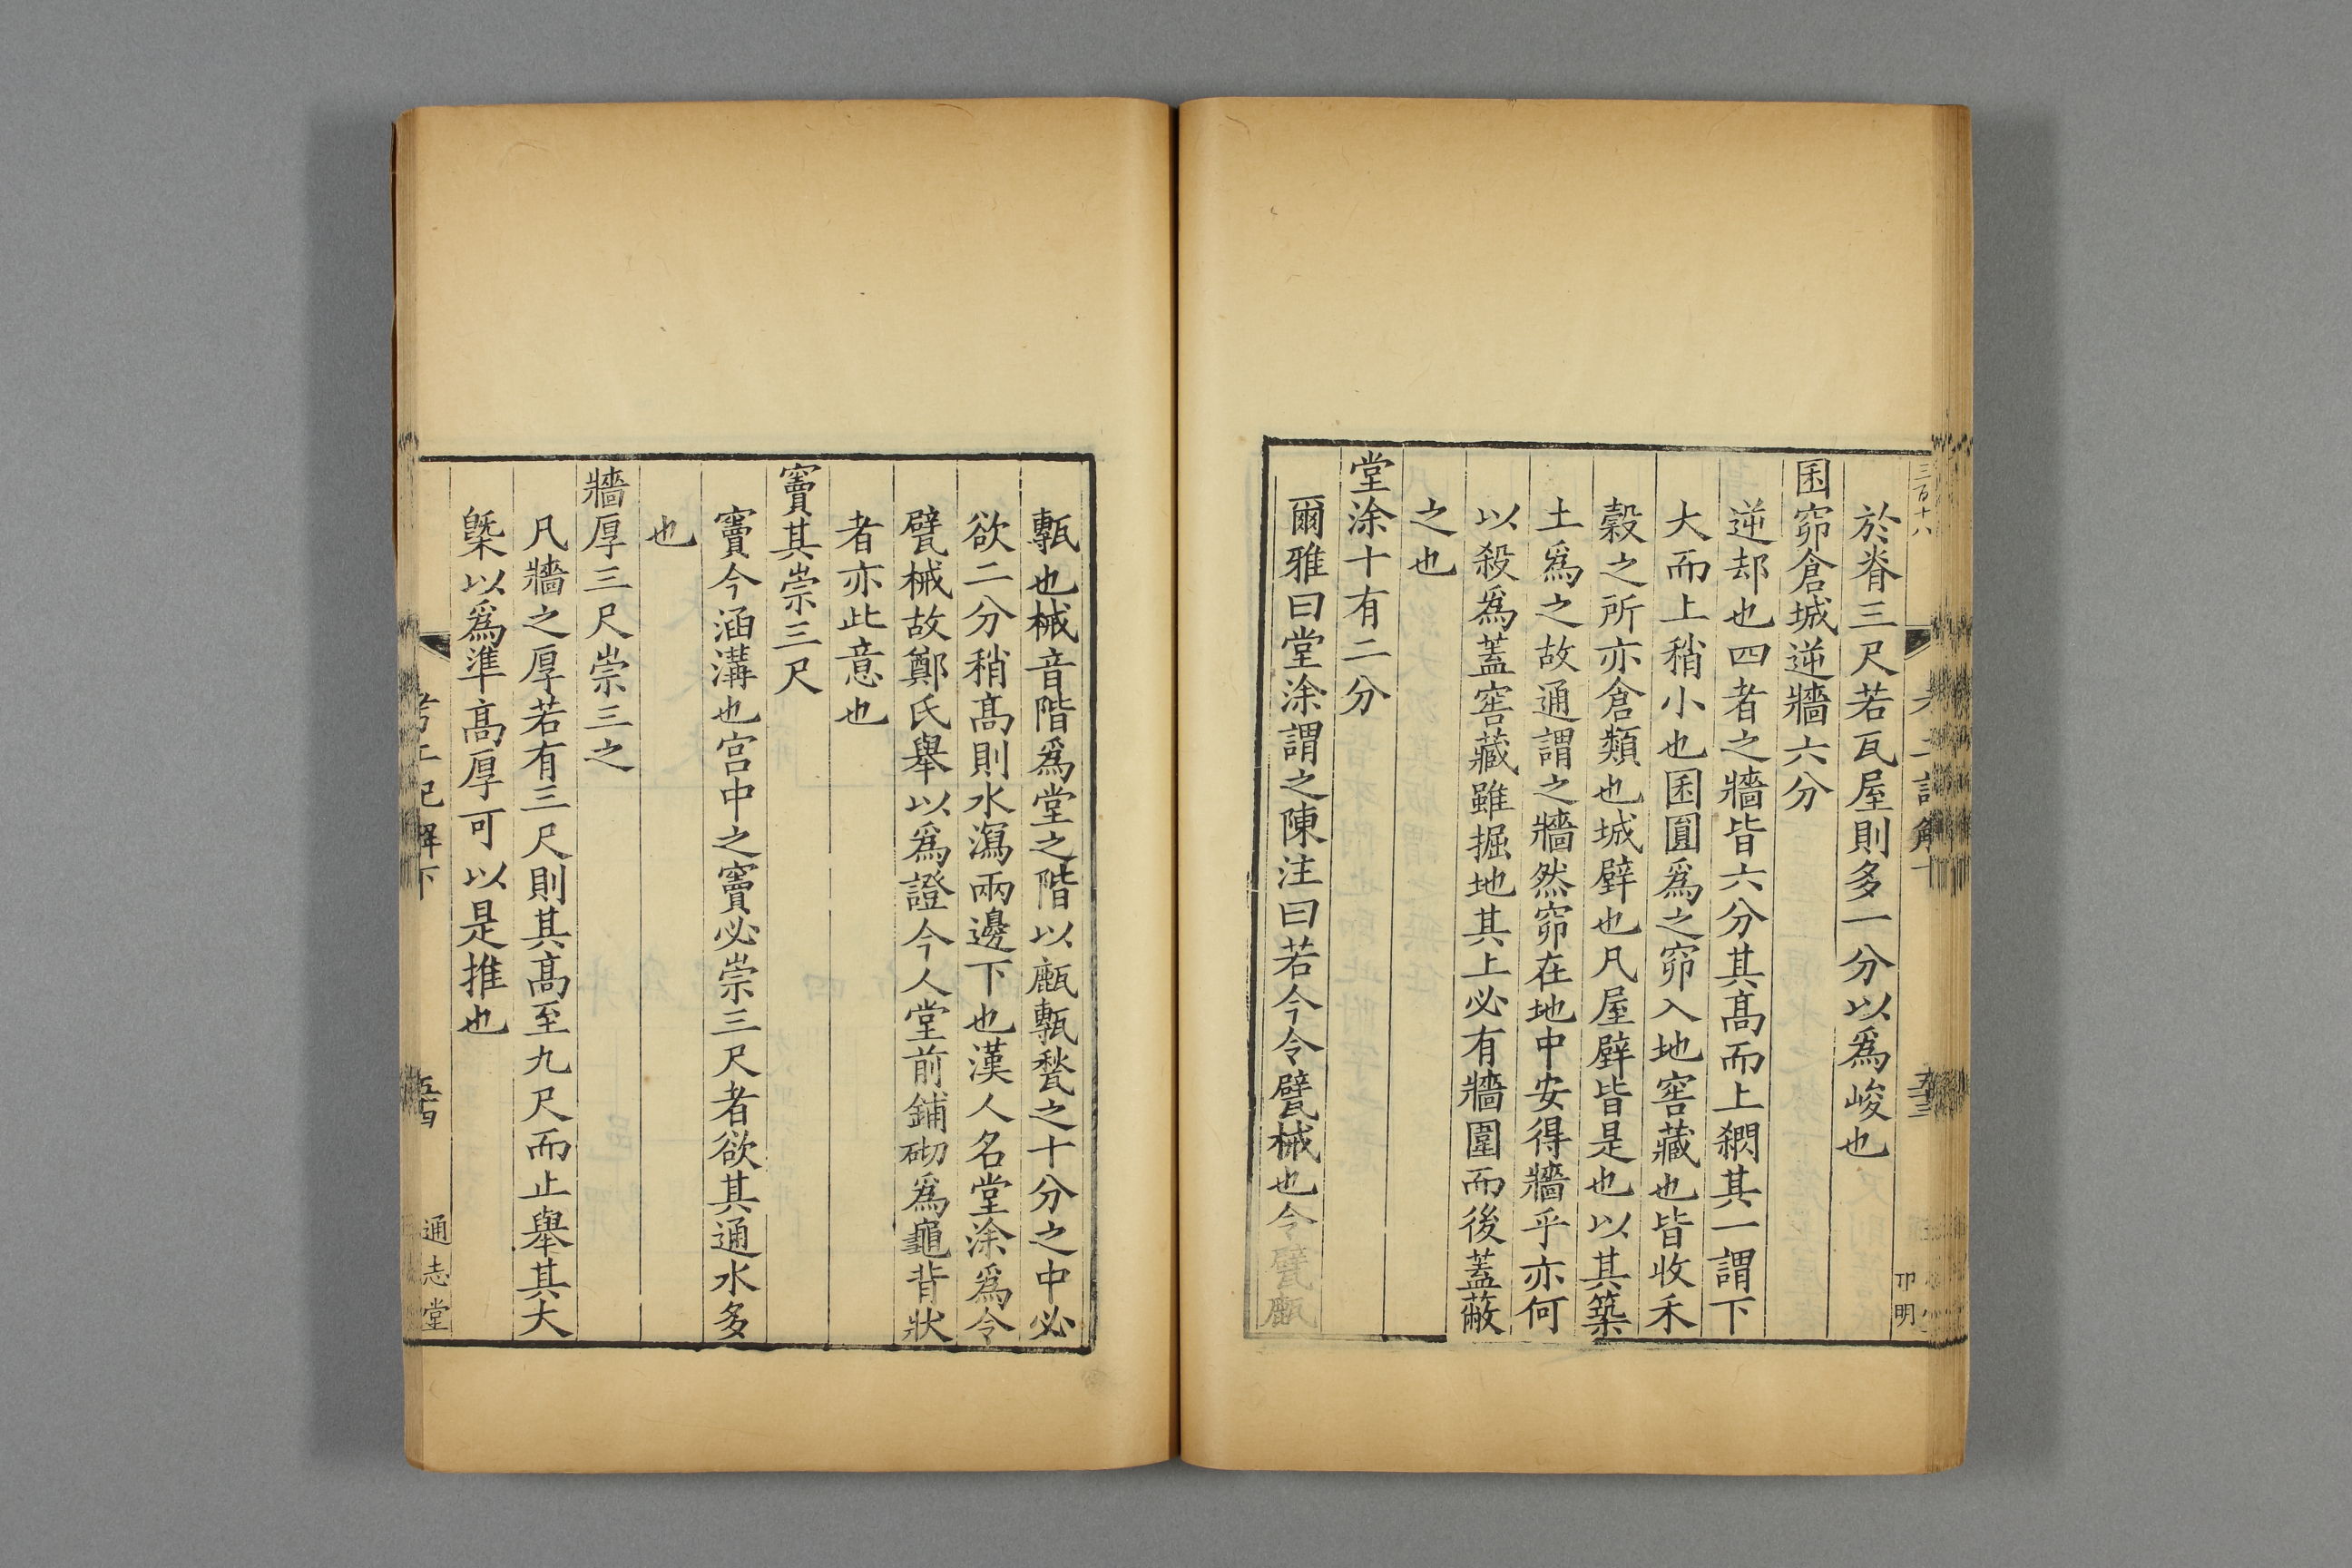 三百十八
於脊三尺若瓦屋則多一分以爲峻也
囷窌倉城逆牆六分
逆却也四者之牆皆六分其髙而上網其一謂下
大而上稍小也囷圓爲之窌入地窖藏也皆收禾
穀之所亦倉類也城壁也凡屋壁皆是也以其築
土爲之故通謂之牆然窌在地中安得牆乎亦何
以殺爲蓋窖藏雖掘地其上必有牆圍而後蓋蔽
之也
堂涂十有二分
爾雅曰堂涂謂之陳注曰若今令甓械也令甓㼾
甎也械音階爲堂之階以㼾甎甃之十分之中必
欲二分稍髙則水瀉兩邊下也漢人名堂涂爲令
甓械故鄭氏舉以爲證今人堂前鋪砌爲龜背狀
者亦此意也
竇其崇三尺
竇今涵溝也宮中之竇必崇三尺者欲其通水多
也
牆厚三尺崇三之
凡牆之厚若有三尺則其髙至九尺而止舉其大
槩以爲準髙厚可以是推也
考工記解下
通志堂